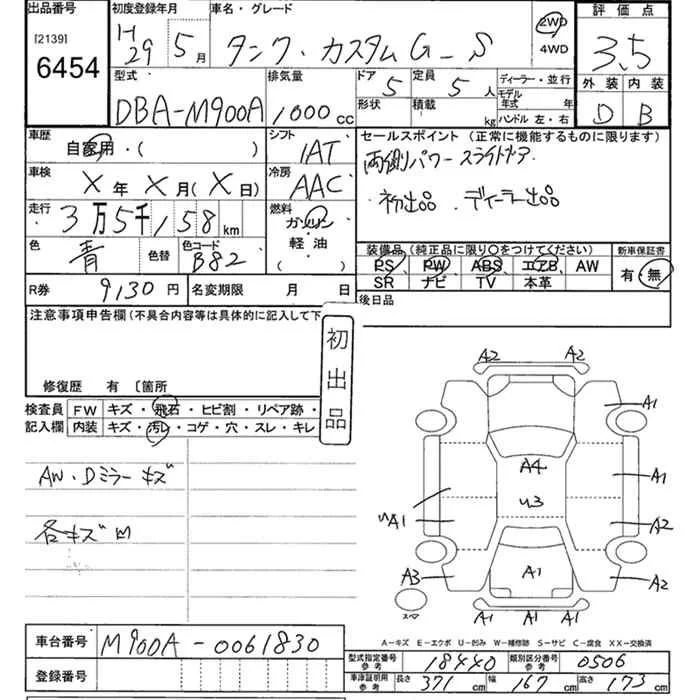 出品番号
[2139]
6454
初度登録年月
H29 5月
車名・グレード
タンク・カスタムG-S
2WD
4WD
評価点
3.5
外装 内装
D B
型式
DBA-M900A
排気量
1000 cc
ドア 5
形状
定員 5 人
積載 kg
ディーラー・並行
モデル年式 年
ハンドル 左・右
車歴
自家用・( )
シフト
IAT
車検
X年X月(X日)
冷房
AAC
セールスポイント (正常に機能するものに限ります)
両側パワースライドドア
初出品 . ディーラー出品
走行
3万5千158km
燃料
ガソリン
軽・油
( )
色
青
色替
色コード
B82
装備品 (純正品に限り〇をつけてください)
新車保証書
PS、PW、ABS、エアB、AW
SR ナビ TV 本革
有・無
R券 9130円
名変期限 月 日
後日品
注意事項申告欄 (不具合内容等は具体的に記入して下
初出品
修復歴 有 〔箇所
検査員記入欄
FW キズ・飛石・ヒビ割・リペア跡・
内装 キズ・汚レ・コゲ・穴・スレ・キレ
AW・Dミラーキズ
各キズ凹
A2 A2
A1
A4
A1
U3
A1
A2
A3
A1
A2
スペア
A1 A1 A1
A-キズ E-エクボ U-凹み W-補修跡 S-サビ C-腐食 XX-交換済
車台番号
M900A-0061830
登録番号
型式指定番号参考 18440
類別区分番号参考 0506
車庫証明用参考 長さ 371cm 幅 167cm 高さ 173cm